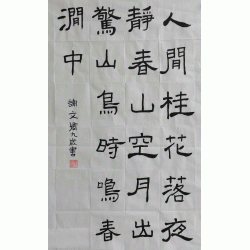 人閒桂花落夜
靜春山空月出
驚山鳥時鳴春
澗中
文九歲書